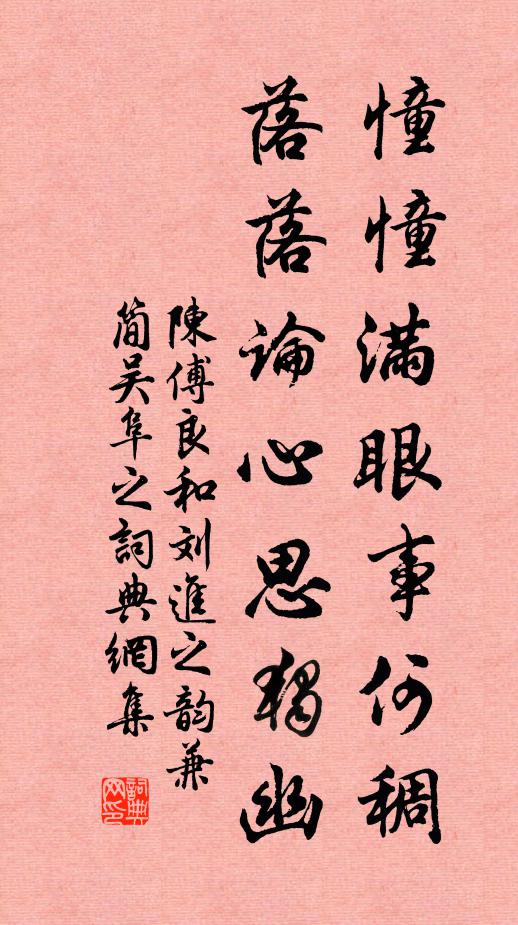 憧憧滿眼事何稠
落落論心思獨幽
陳傅良和刘進之韵兼
簡吴阜之詞典網集
詞典网印